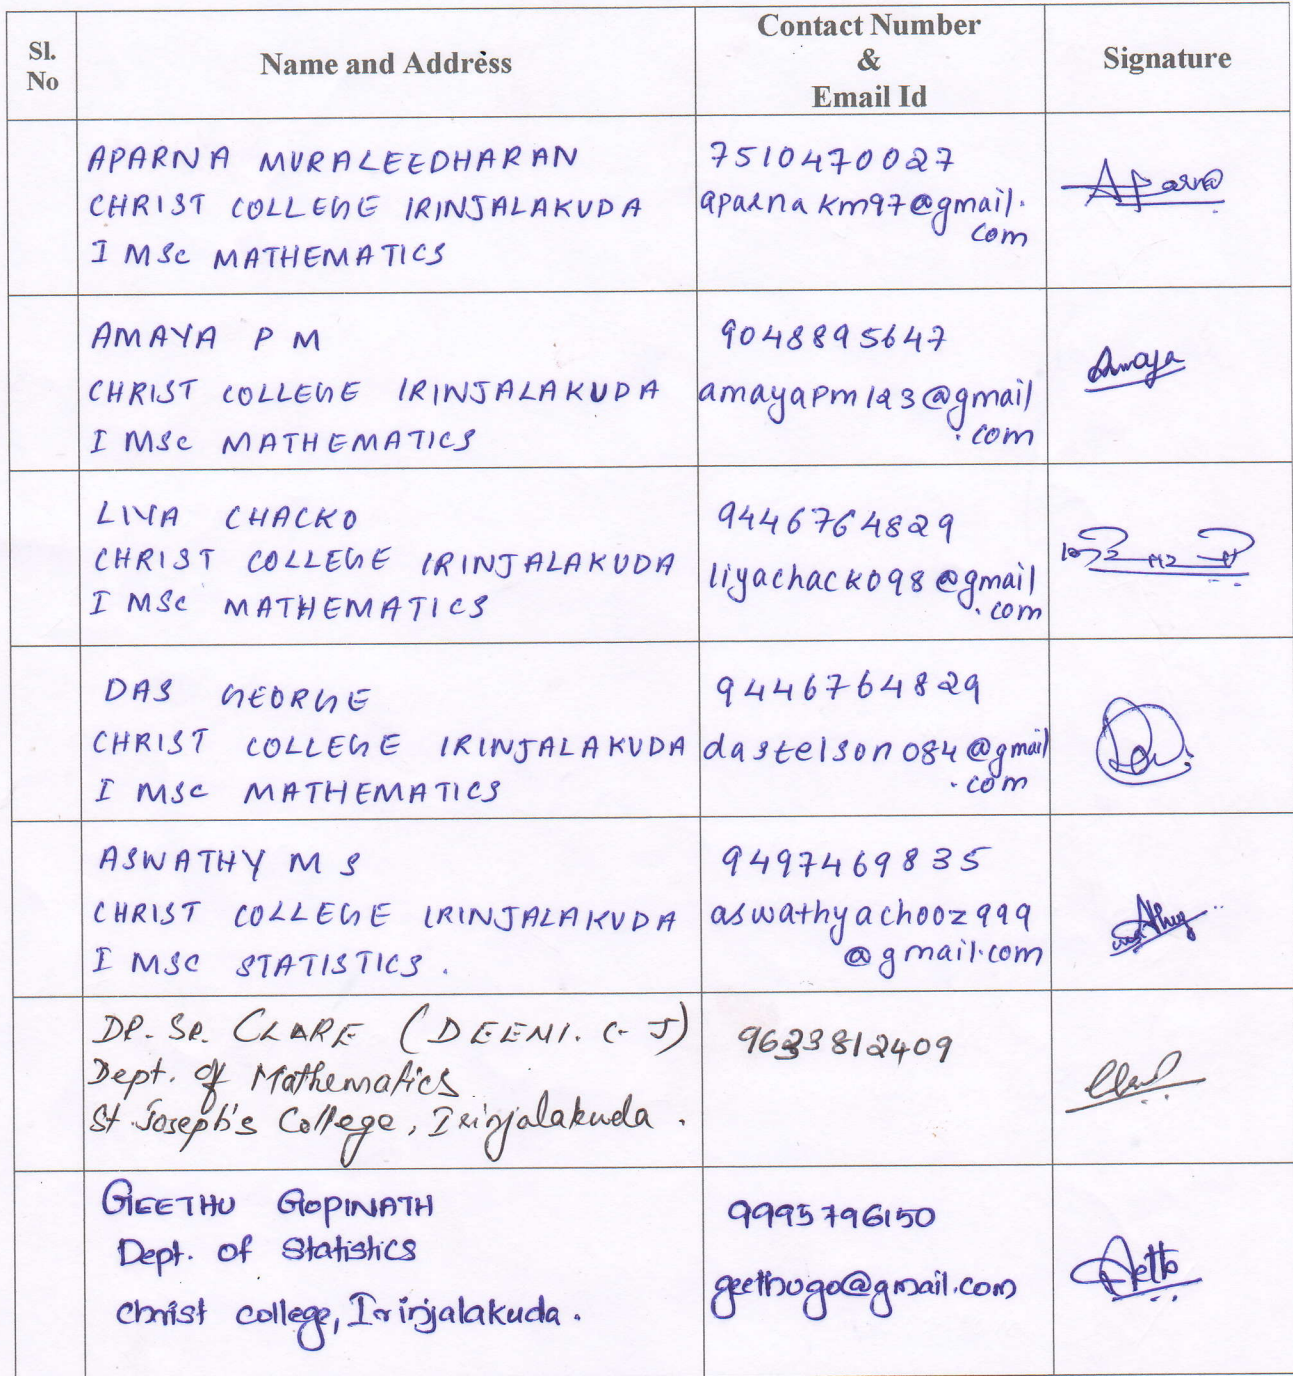 Sl. No
Name and Address
Contact Number
&
Email Id
Signature
APARNA MURALEEDHARAN
CHRIST COLLEGE IRINJALAKUDA
I MSc MATHEMATICS
7510470027
aparnakm97@gmail.
com
Aparna
AMAYA P M
CHRIST COLLEGE IRINJALAKUDA
I MSc MATHEMATICS
9048895647
amayapm123@gmail
.com
Amaya
LIYA CHACKO
CHRIST COLLEGE IRINJALAKUDA
I MSc MATHEMATICS
9446764829
liyachacko98@gmail
.com
DAS GEORGE
CHRIST COLLEGE IRINJALAKUDA
I MSc MATHEMATICS
9446764829
dastelson084@gmail
.com
ASWATHY M S
CHRIST COLLEGE IRINJALAKUDA
I MSC STATISTICS.
9497469835
aswathyachooz999
@gmail.com
DR. SR. CLARE (DEENI. C. J)
Dept. of Mathematics
St. Joseph's College, Irinjalakuda.
9633812409
GEETHU GOPINATH
Dept. of Statistics
christ college, Irinjalakuda.
9995796150
geethugo@gmail.com